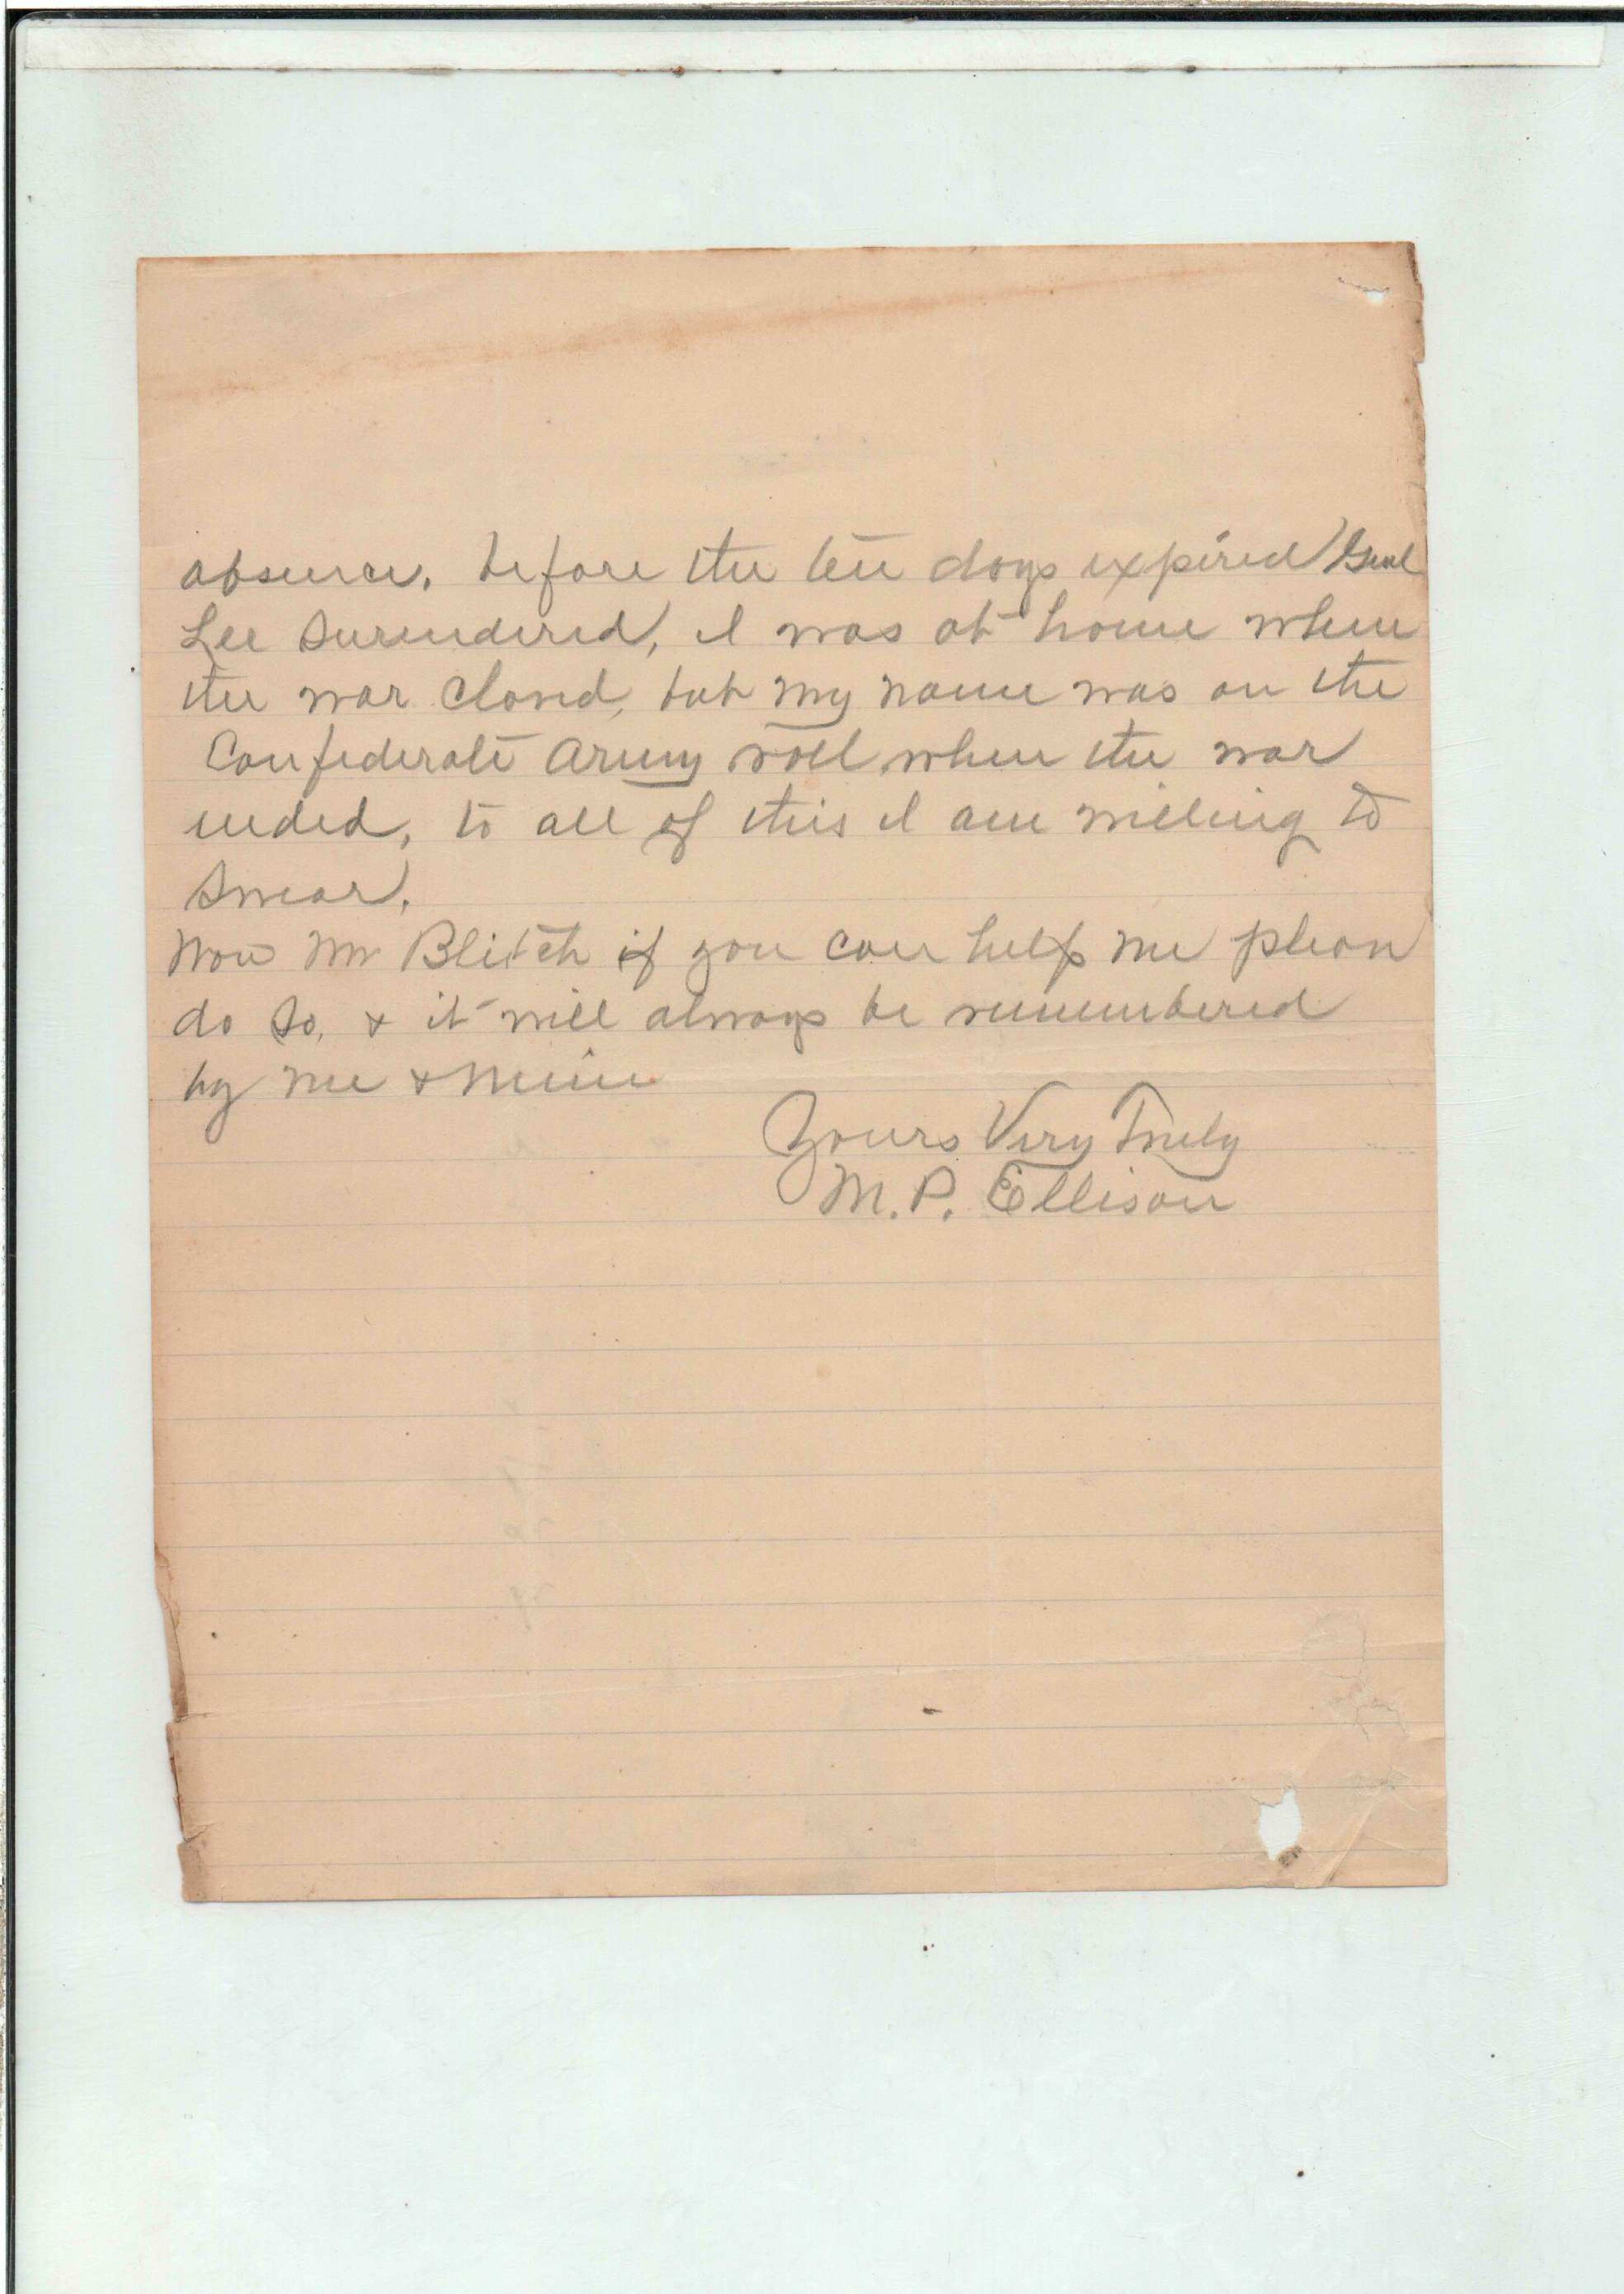 absence. before the ten days expired Genl
Lee Surendered, I was at home when
the war closed, but my name was on the
Confederate Army roll when the war
ended, to all of this I am willing to
Swear.
Now Mr Blitch if you can help me please
do so, & it will always be remembered
by me & mine
Yours Very Truly
M. P. Ellison